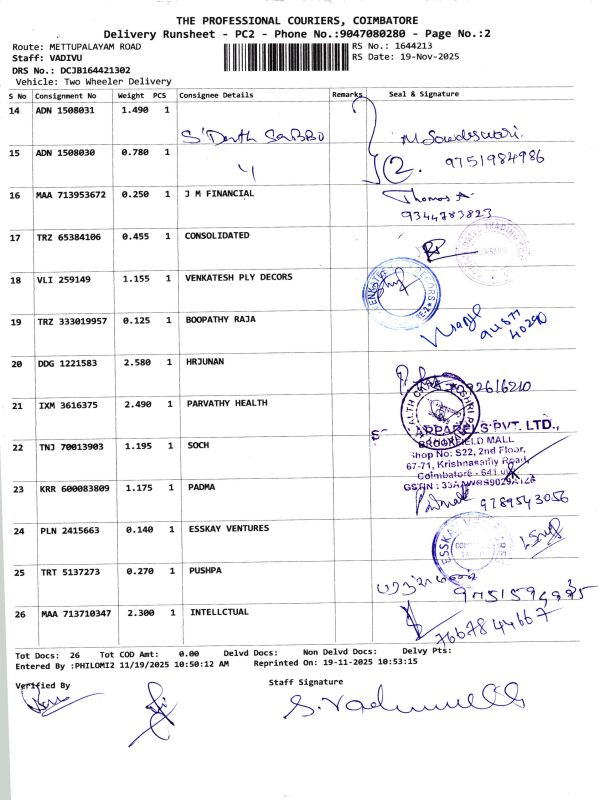 THE PROFESSIONAL COURIERS, COIMBATORE
Delivery Runsheet - PC2 - Phone No.:9047080280 - Page No.:2
Route: METTUPALAYAM ROAD RS No.: 1644213
Staff: VADIVU RS Date: 19-Nov-2025
DRS No.: DCJB164421302
Vehicle: Two Wheeler Delivery
S No Consignment No Weight PCS Consignee Details Remarks Seal & Signature
14 ADN 1508031 1.490 1
15 ADN 1508030 0.780 1 2. 9751984986
16 MAA 713953672 0.250 1 J M FINANCIAL Thomas A
9344783823
17 TRZ 65384106 0.455 1 CONSOLIDATED
18 VLI 259149 1.155 1 VENKATESH PLY DECORS
19 TRZ 333019957 0.125 1 BOOPATHY RAJA
20 DDG 1221583 2.580 1 HRJUNAN
21 IXM 3616375 2.490 1 PARVATHY HEALTH
APPARELS PVT. LTD.,
BROOKFIELD MALL
Shop No: S22, 2nd Floor,
67-71, Krishnasamy Road,
22 TNJ 70013903 1.195 1 SOCH
23 KRR 600083809 1.175 1 PADMA
9789543056
24 PLN 2415663 0.140 1 ESSKAY VENTURES
25 TRT 5137273 0.270 1 PUSHPA
26 MAA 713710347 2.300 1 INTELLCTUAL 7667844667
Tot Docs: 26 Tot COD Amt: 0.00 Delvd Docs: Non Delvd Docs: Delvy Pts:
Entered By :PHILOMI2 11/19/2025 10:50:12 AM Reprinted On: 19-11-2025 10:53:15
Verified By Staff Signature